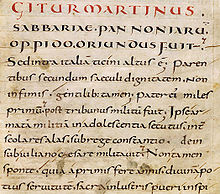 GITUR MARTINUS
SABBARIAE PANNONIARU
OPPIDO ORIUNDUS FUIT
Sed intra italia ticini altus e Paren
tibus secundum saeculi dignitatem Non
infimis gentilib; tamen; pater ei miles
primu post tribunus militu fuit, Ipse ar
mata militia in adolescentia secutus, int
scolares alas, sub rege constantio, dein
sub iuliano caesare militavit; Non tamen
sponte, quia a primis fere annis, divina po
tius servitute sacra inlustris pueri inspi